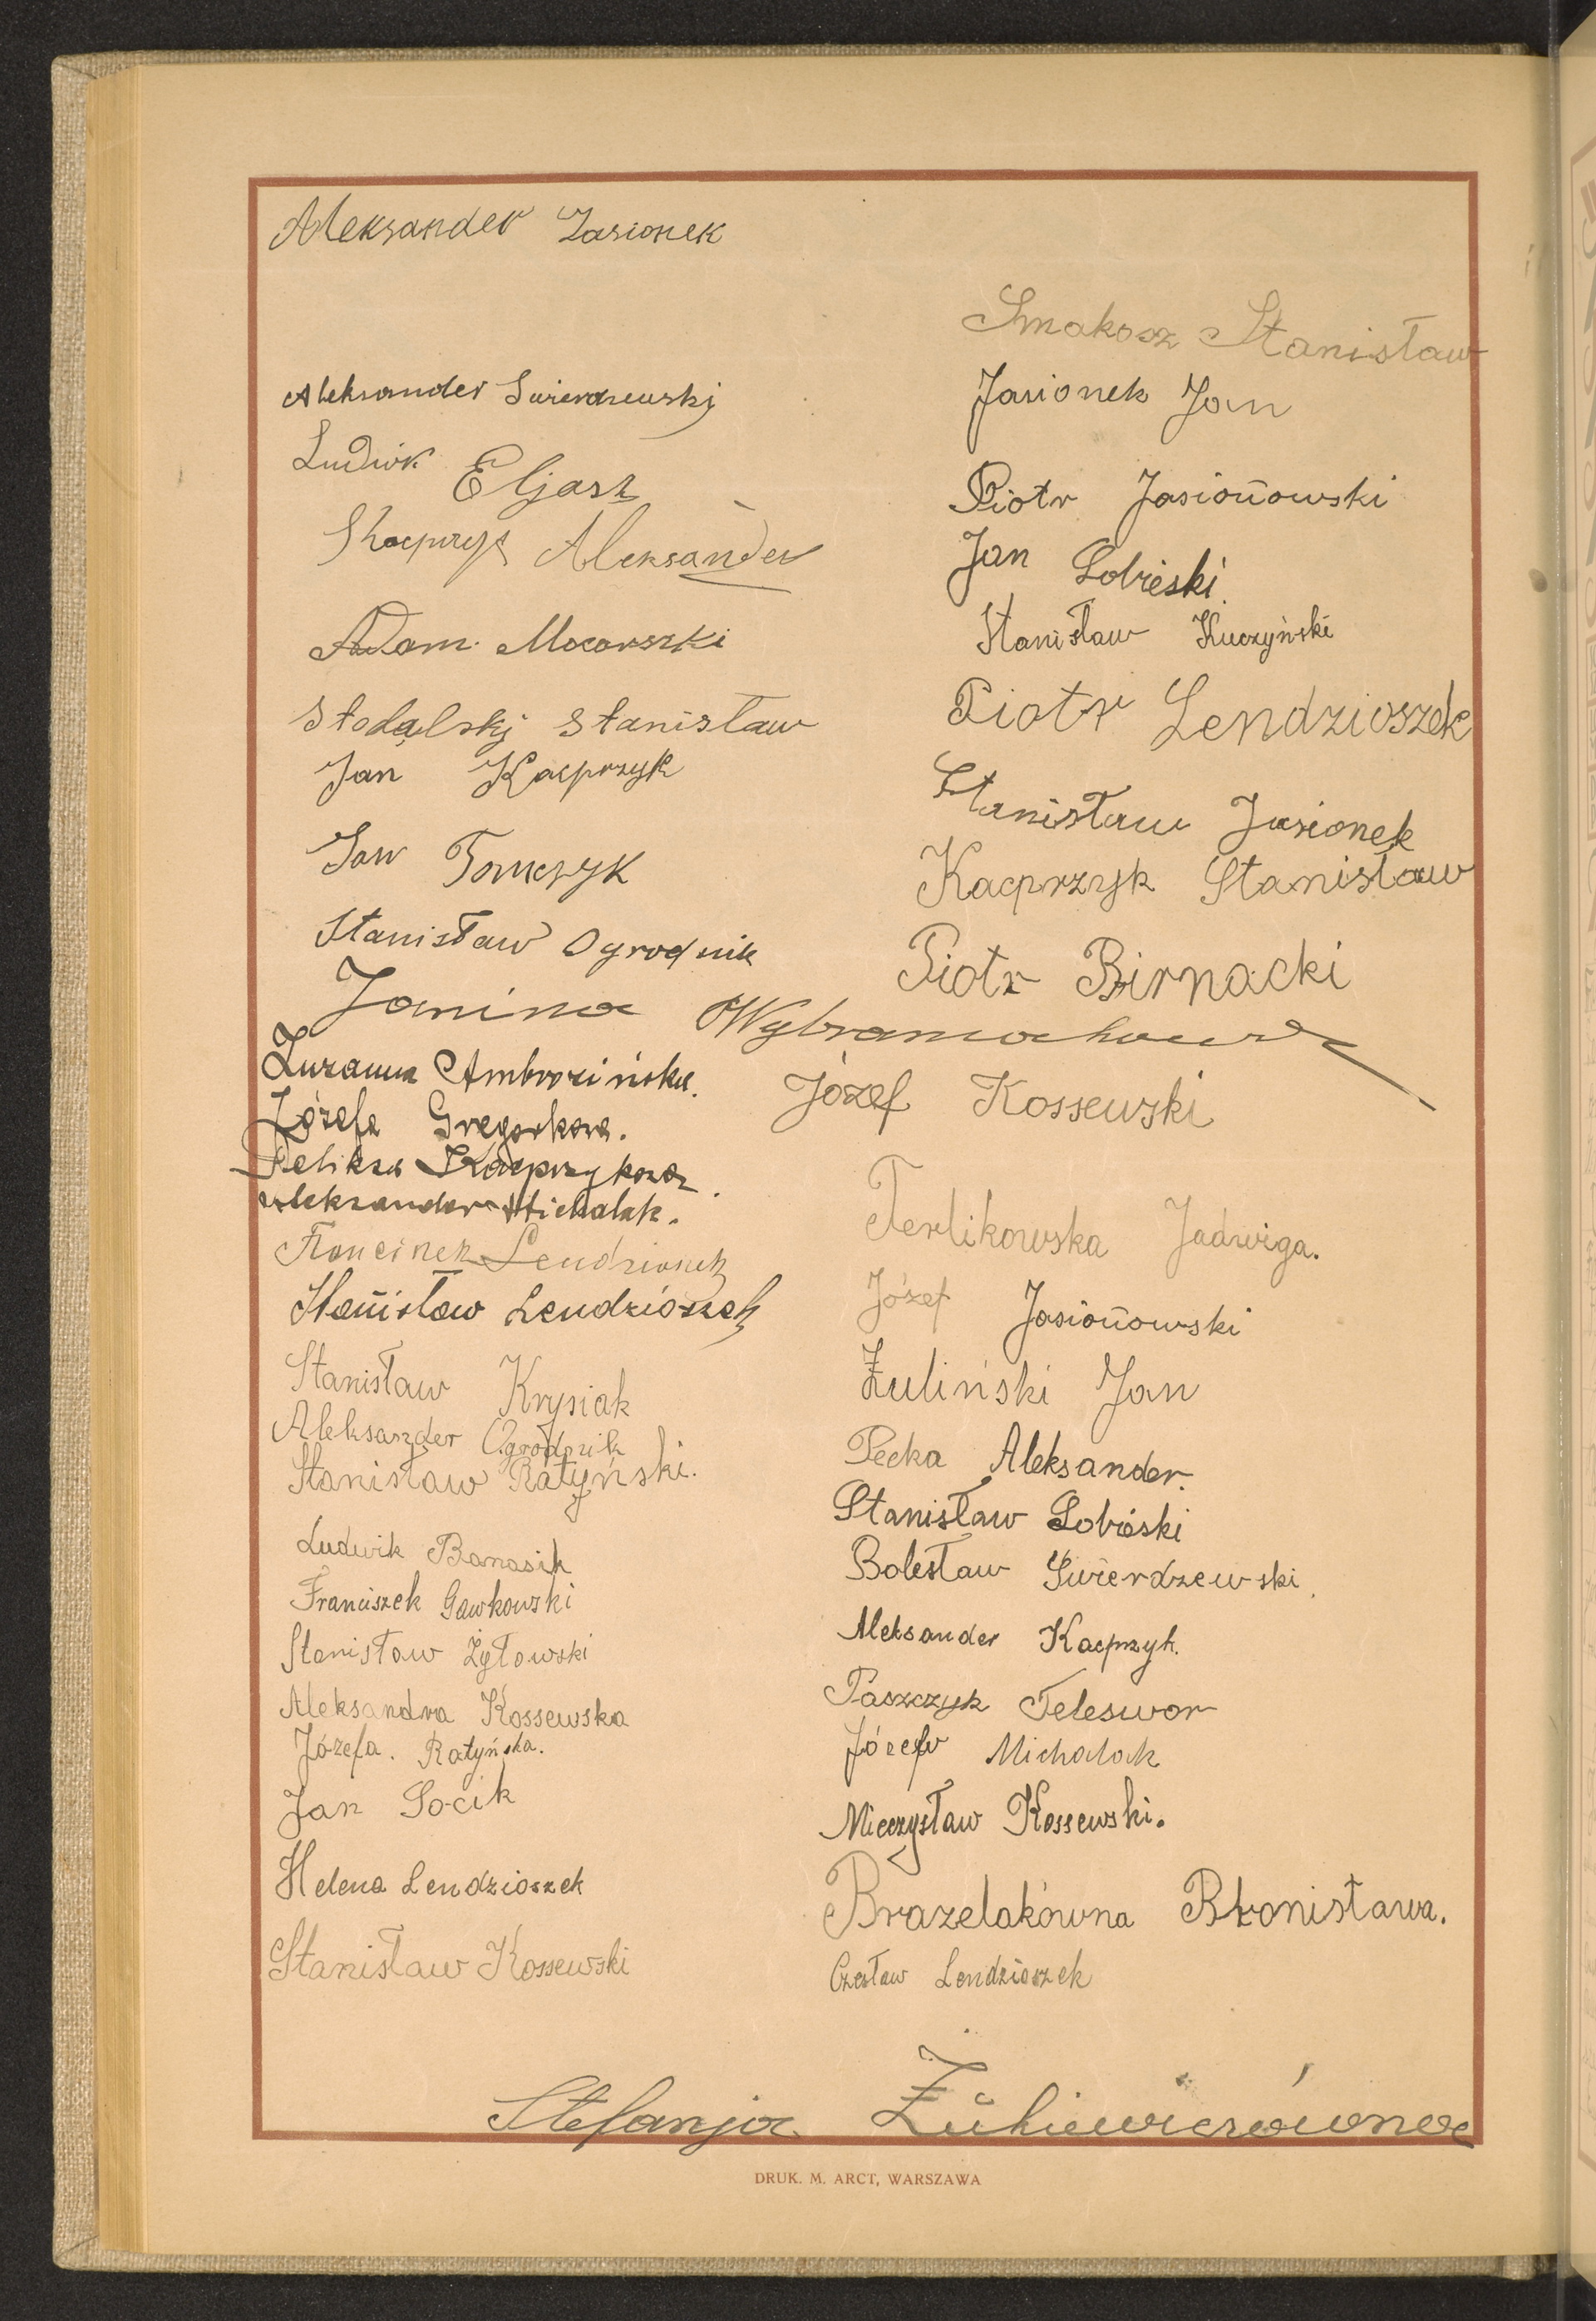 Aleksander Jasionek
Aleksander Swierdzewski
Ludwik Eljasz
Kacprzyk Aleksander
Adam Mocarszki
Stodalskj Stanisław
Jan Kacprzyk
Jan Tomczyk
Stanisław Ogrodnik
Janina
Zuzanna Ambrozińska.
Józefa Gregorkowa.
Feliksa Kacprzykowa.
Aleksander Michalak.
Francisek Lendzioszek
Stanisław Lendzioszek
Stanisław Krysiak
Aleksander Ogrodnik
Stanisław Ratyński.
Ludwik Banasik
Franciszek Gawkowski
Stanisław Żyłowski
Aleksandra Kossewska
Józefa. Ratyńska.
Jan Socik
Helena Lendzioszek
Stanisław Kossewski
Smakosz Stanisław
Jasionek Jan
Piotr Jasionowski
Jan Sobieski
Stanisław Kuczyński
Piotr Lendzioszek
Stanisław Jasionek
Kacprzyk Stanisław
Piotr Birnacki
Józef Kossewski
Terlikowska Jadwiga.
Józef Jasionowski
Żuliński Jan
Pecka Aleksander.
Stanisław Sobieski
Bolesław Swierdzewski.
Aleksander Kacprzyk.
Paszczyk Teleswor
Józef Michalak
Mieczysław Kossewski.
Brazelakówna Bronisława.
Czesław Lendzioszek
Stefanja Żukiewiczówna
DRUK. M. ARCT, WARSZAWA